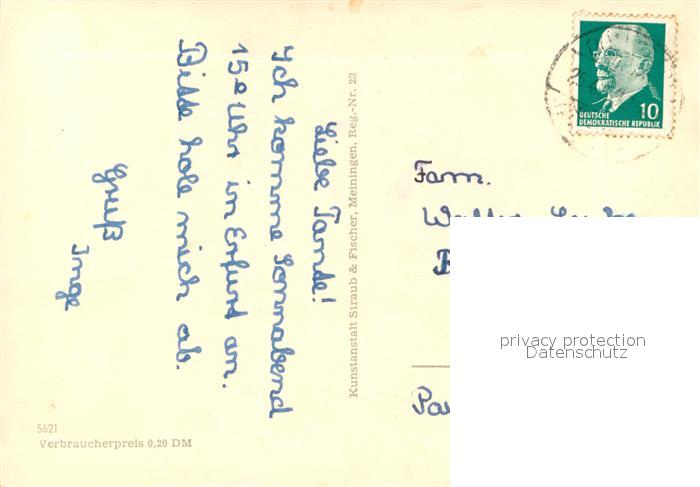 Liebe Tante!
Ich komme Sonnabend
15⁰⁰ Uhr in Erfurt an.
Bitte hole mich ab.
Gruß
Inge
Kunstanstalt Straub & Fischer, Meiningen, Reg.-Nr. 23
5621
Verbraucherpreis 0,20 DM
10
DEUTSCHE
DEMOKRATISCHE REPUBLIK
Fam.
privacy protection
Datenschutz